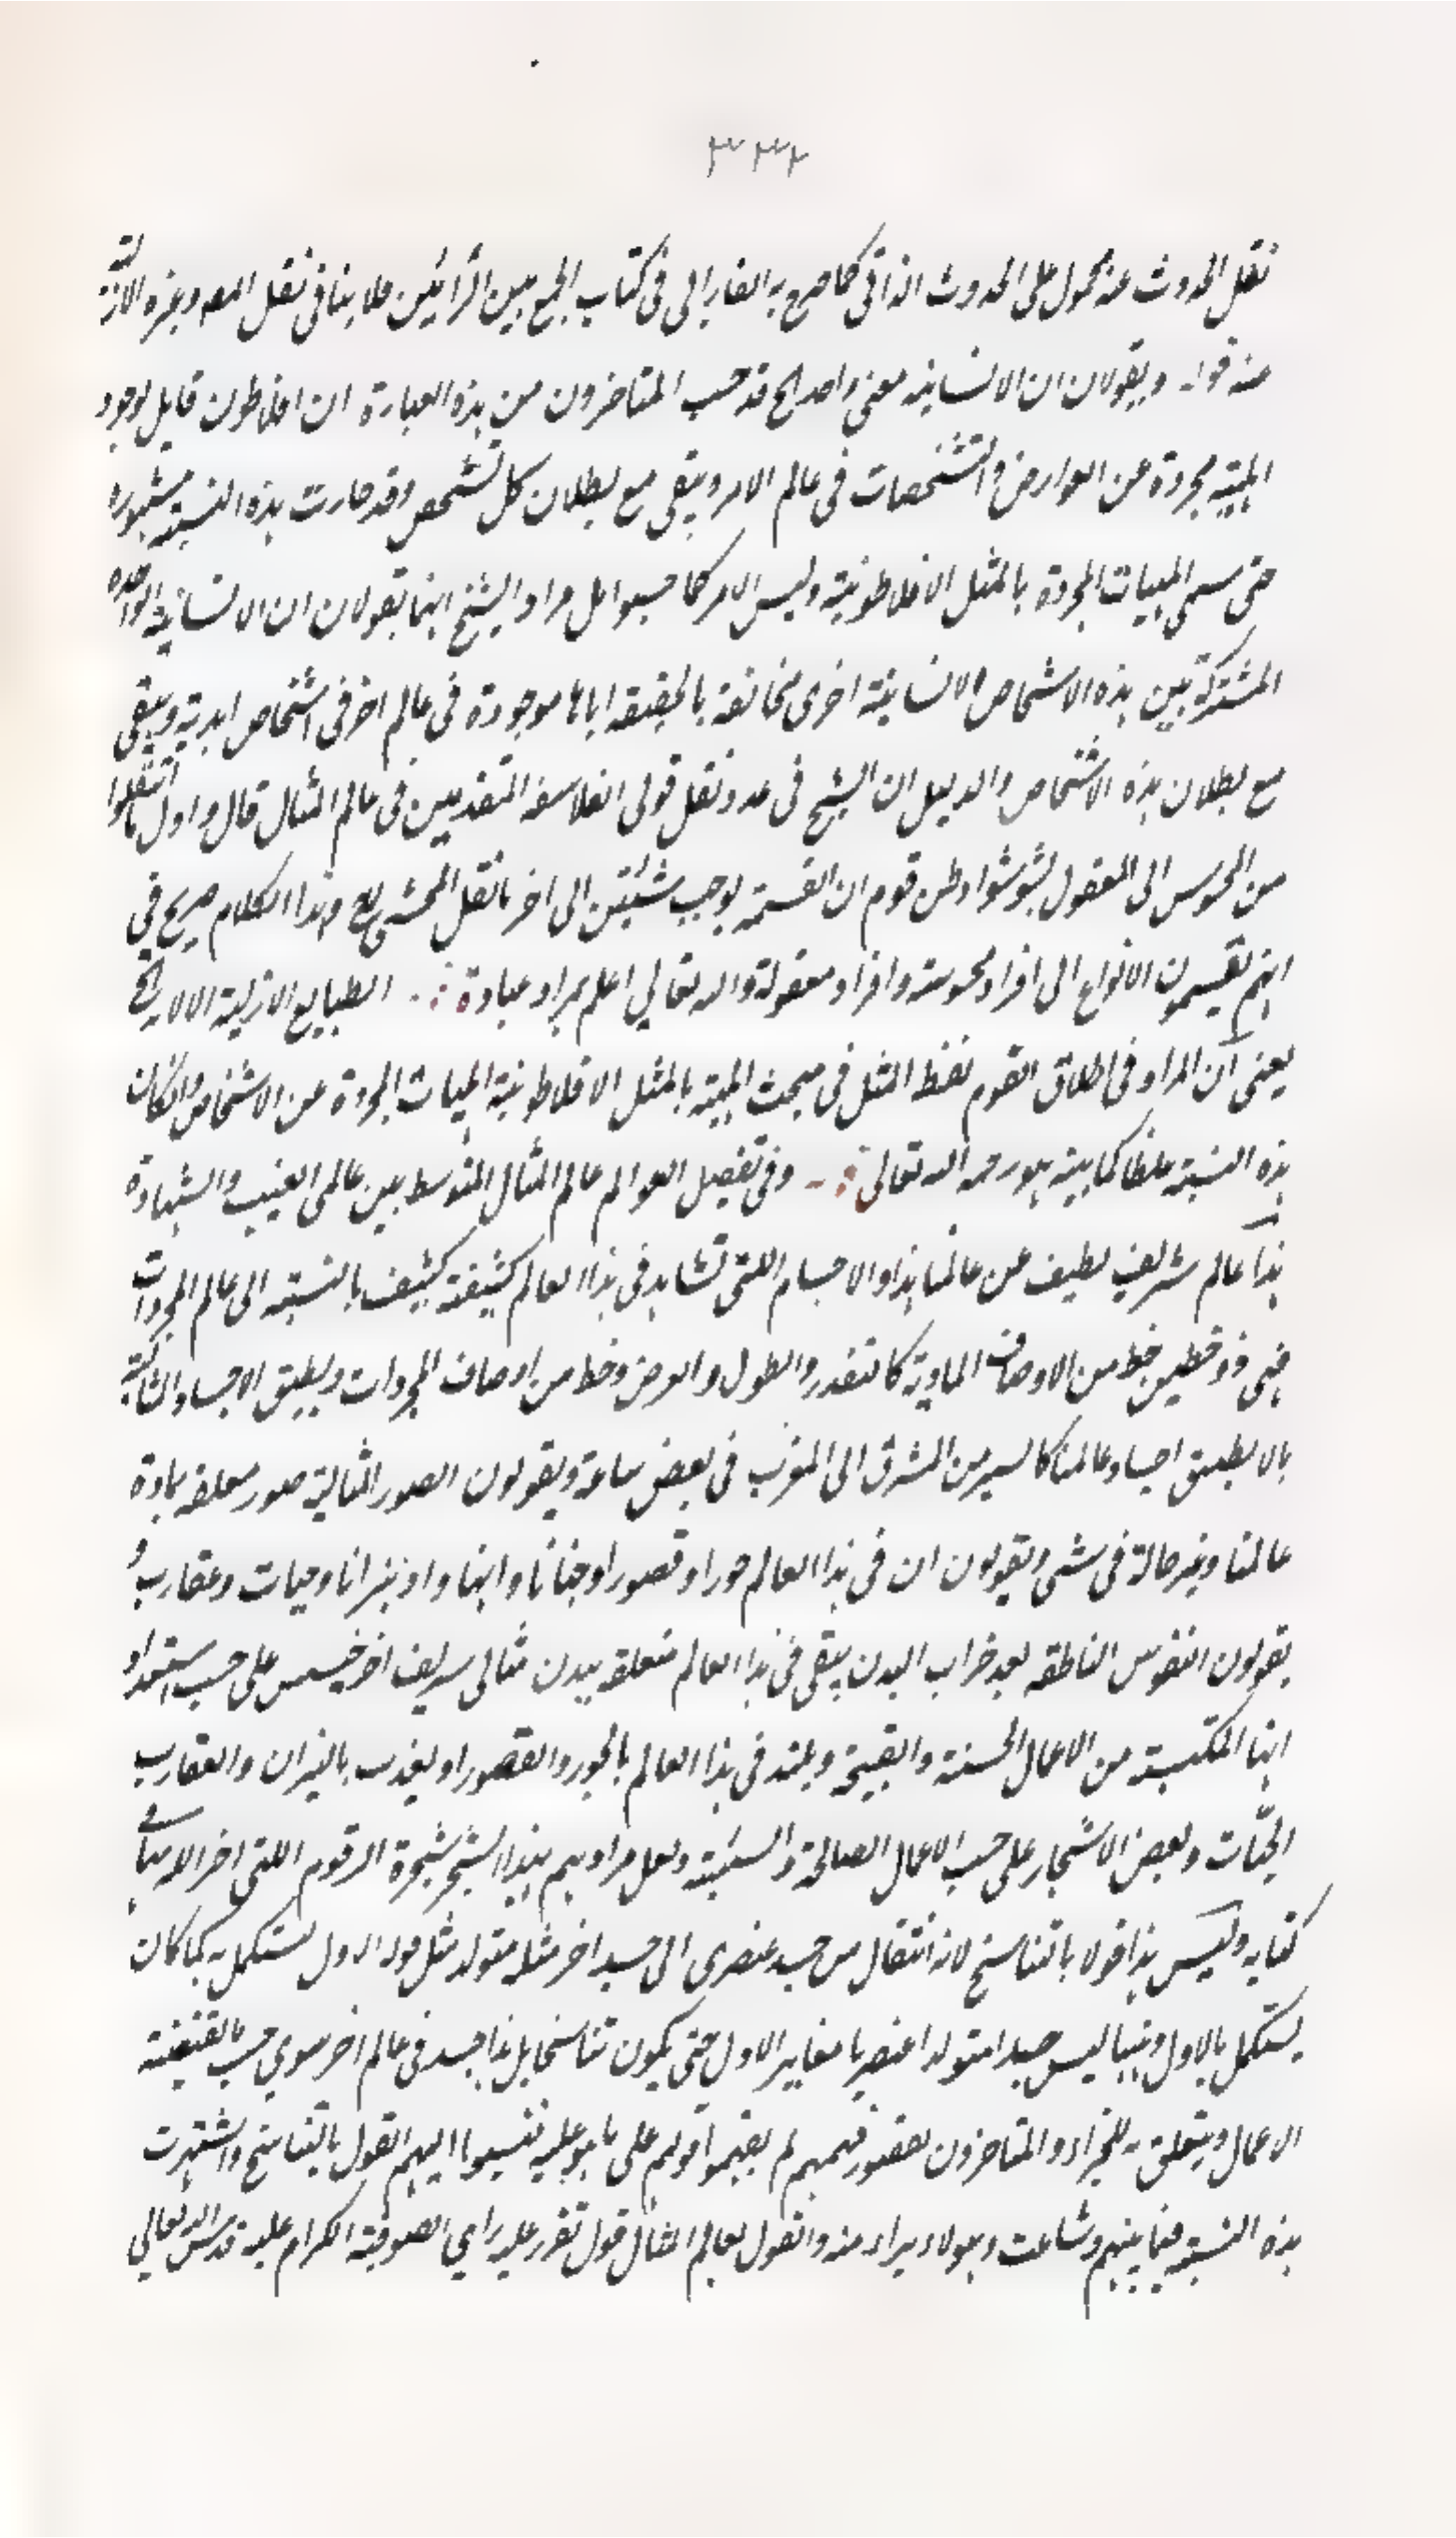 ٣٣٢
نقل الحدوث عنه محمول على الحدوث الذاتى كما صرح به الفارابى فى كتاب الجمع بين الرأيين فلا ينافى نقل المص وغيره الازلية
عنه قوله ويقولان ان الانسانية معنى واحد الخ قد حسب المتاخرون من هذه العبارة ان افلاطون قايل بوجود
المهية مجردة عن العوارض والتشخصات فى عالم الامر ويبقى مع بطلان كل تشخص وقد صارت هذه النسبة مشهورة
حتى سمى المهيات المجردة بالمثل الافلاطونية وليس الامر كما حسبوا بل مراد الشيخ انهما يقولان ان الانسانية الواحدة
المشتركة بين هذه الاشخاص الانسانية اخرى مخالفة بالحقيقه اياها موجودة فى عالم اخر فى اشخاص ابدية ويبقى
مع بطلان هذه الاشخاص والدليل ان الشيخ فى صدد نقل قولى الفلاسفة المتقدمين فى عالم المثال قال واول ما انتقلوا
من المحسوس الى المعقول تشوشوا وظن قوم ان القسمة يوجب شيئين الى اخر ما نقل المحشى رح وهذا الكلام صريح فى
انهم يقسمون الانواع الى افراد محسوسة وافراد معقولة والله تعالى اعلم بمراد عباده الطبايع الازلية الابدية الخ
يعنى ان المراد فى اطلاق القوم لفظ المثل فى مبحث المهية بالمثل الافلاطونية المهيات المجردة عن الاشخاص وان كان
هذه النسبة غلطا كما بينه هو رحمه الله تعالى وفى تفصيل العوالم عالم المثال المتوسط بين عالمى الغيب والشهادة
هذا عالم شريف لطيف عن عالمنا هذا والاجسام اللتى تشاهد فى هذا العالم كثيفة كثيف بالنسبة الى عالم المجردات
فهى ذو حظين حظ من الاوصاف المادية كالتقدر والطول والعرض وحظ من اوصاف المجردات ويطيق الاجساد المثالية
بالا يطيق اجساد عالمنا كالسير من المشرق الى المغرب فى بعض ساعة ويقولون الصور المثالية صور معلقة بمادة
عالمنا وغير حالة فى شى ويقولون ان فى هذا العالم حورا وقصورا وجنانا وانهارا ونيرانا وحيات وعقارب و
يقولون النفوس الناطقه بعد خراب البدن يبقى فى هذا العالم متعلقه ببدن مثالى شريف اخر خسيس على حسب استعداد
اتها المكتسبة من الاعمال الحسنة والقبيحة ويلتذ فى هذا العالم بالحور والقصور او يعذب بالنيران والعقارب
الحيّات وبعض الاشجار على حسب الاعمال الصالحة والسيئة ولعل مرادهم بهذا الشجر شجرة الزقوم اللتى اخر الله سبحانه فى
كتابه وليس هذا قولا بالتناسخ لانه انتقال من جسد عنصرى الى جسد اخر مثله متولد مثل تولد الاول لتستكمل به كما كان
يستكمل بالاول وههنا ليس جسدا متولدا عنصريا مغاير الاول حتى يكون تناسخا بل هذا جسد فى عالم اخر سوى حسب ما تقتضيه
الاعمال ويتعلق به للجزاء والمتاخرون لقصور فهمهم لم يفهموا قولهم على ما هو عليه فنسبوا اليهم القول بالتناسخ واشتهرت
هذه النسبة فيما بينهم وشاعت وهولاء براء منه والقول بعالم المثال قول تقرر عليه راى الصوفية الكرام عليه قدس الله تعالى